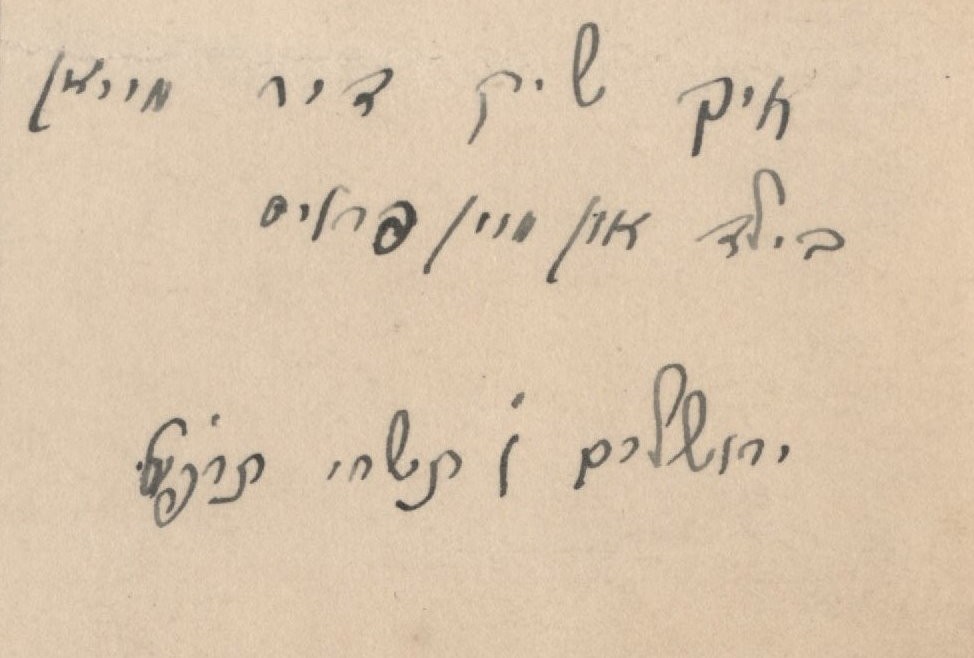 איך שיק דיר מייאן
בילד און מיין פרויס
ירושלים ו' תשרי